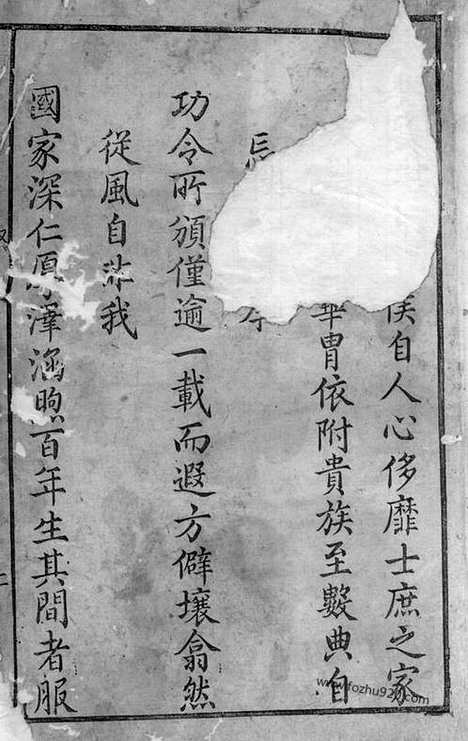 侯自人心侈靡士庶之家
華胄依附貴族至數典自
忘
功令所頒僅逾一載而遐方僻壤翕然
從風自非我
國家深仁厚澤涵煦百年生其間者服
www.fozhu920.com